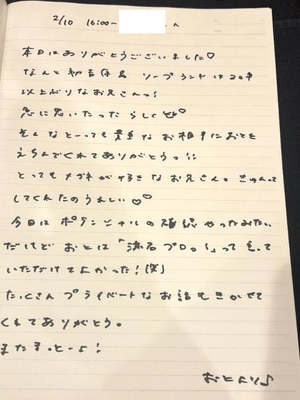 2/10 16:00~ さん
本日はありがとうございました♡
なんと初吉原&ソープランドは20年
以上ぶりなお兄さんっ!
急に思いたったらしく
そんなとーっても貴重なお相手におとを
えらんでくれてありがとうっ!!
とってもメガネが好きなお兄さん。きゅんって
してくれたのうれしい♡♡
今日はポテンシャルの確認やったみたい
だけどおとは「流石プロ。!」って言って
いただけてよかった!(笑)
たくさんプライベートなお話もきかせて
くれてありがとう。
またまっとーよ!
おとより♪